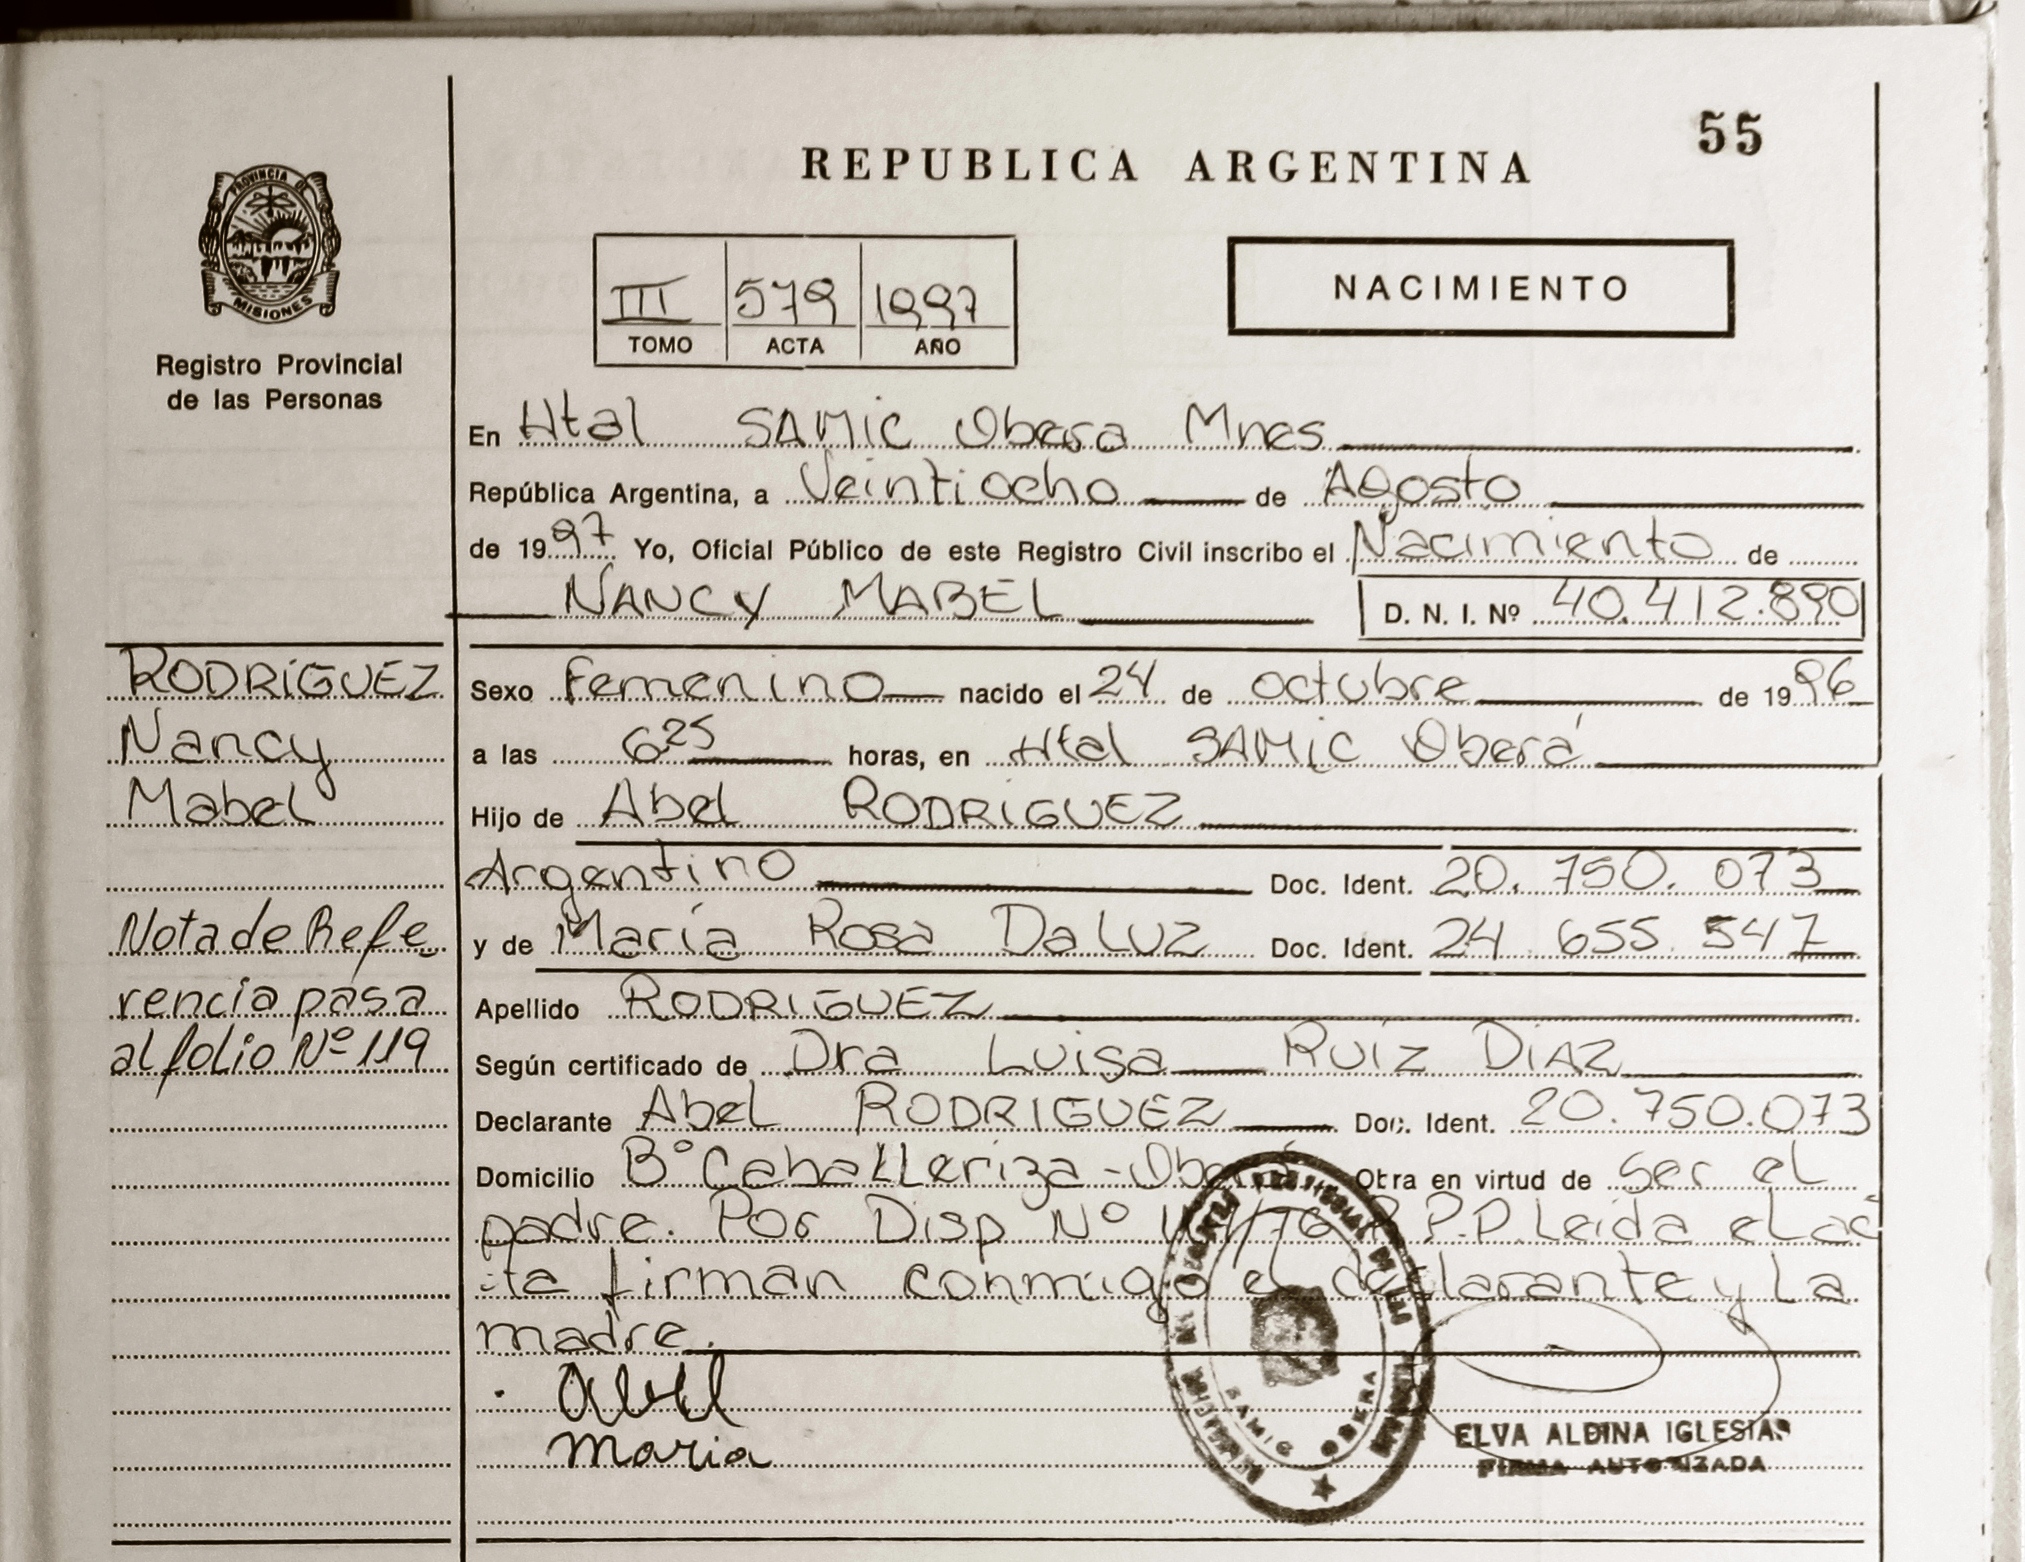 55
REPUBLICA ARGENTINA
PROVINCIA DE
MISIONES
Registro Provincial
de las Personas
III 579 1997
TOMO ACTA AÑO
NACIMIENTO
En Htal SAMIC Obera Mnes
República Argentina, a Veintiocho de Agosto
de 1997 Yo, Oficial Público de este Registro Civil inscribo el Nacimiento de
NANCY MABEL D. N. I. Nº 40.412.890
RODRÍGUEZ
Nancy
Mabel
Nota de Refe
rencia pasa
al folio Nº 119
Sexo Femenino nacido el 24 de octubre de 1996
a las 6 25 horas, en Htal SAMIC Oberá
Hijo de Abel RODRIGUEZ
Argentino Doc. Ident. 20.750.073
y de María Rosa Da LUZ Doc. Ident. 24 655 547
Apellido RODRIGUEZ
Según certificado de Dra Luisa RUIZ DIAZ
Declarante Abel RODRIGUEZ Doc. Ident. 20.750.073
Domicilio Bº Caballeriza - Oberá Obra en virtud de ser el
padre. Por Disp Nº P.P. Leida el ac
ta firman conmigo el declarante y La
madre.
Abel
maria
SAMIC OBERA
ELVA ALDINA IGLESIAS
FIRMA AUTORIZADA